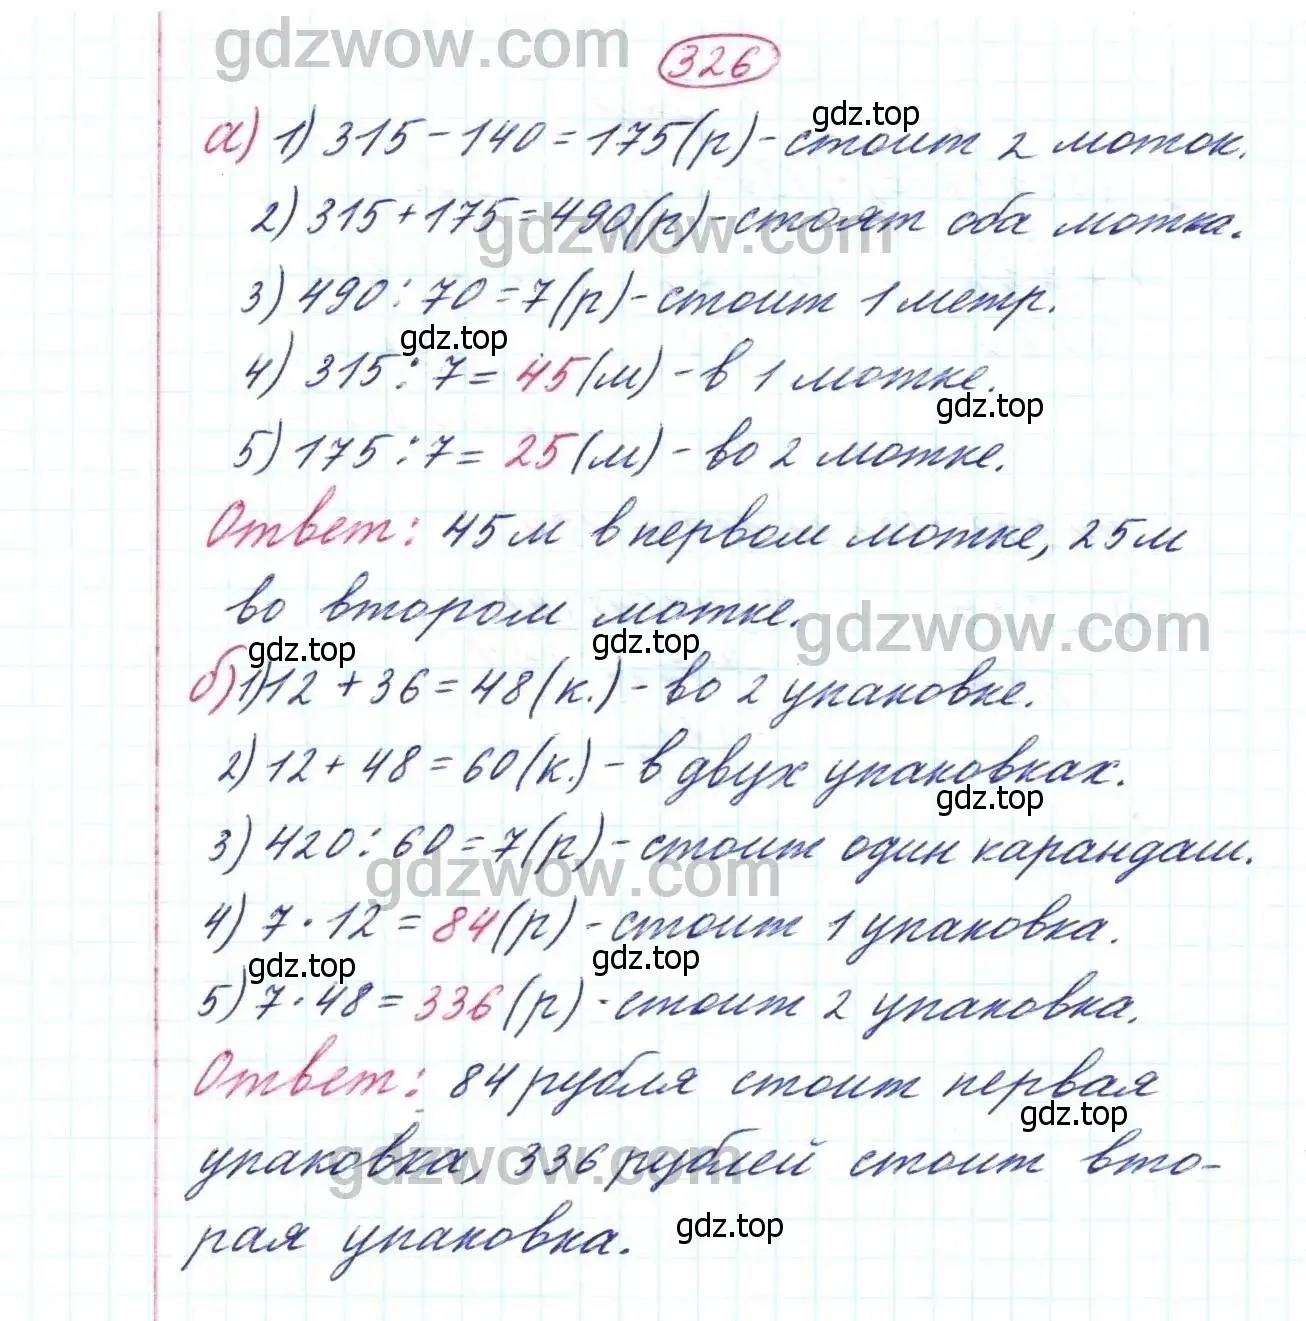 gdzwow.com
326
gdz.top
а) 1) 315 - 140 = 175 (р) - стоит 2 моток.
2) 315 + 175 = 490 (р) - стоят оба мотка.
gdzwow.com
3) 490 : 70 = 7 (р) - стоит 1 метр.
gdz.top
4) 315 : 7 = 45 (м) - в 1 мотке.
gdz.top
5) 175 : 7 = 25 (м) - во 2 мотке.
Ответ: 45 м в первом мотке, 25 м
во втором мотке.
gdzwow.com
gdz.top gdz.top
б) 1) 12 + 36 = 48 (к.) - во 2 упаковке.
2) 12 + 48 = 60 (к.) - в двух упаковках.
gdz.top
3) 420 : 60 = 7 (р) - стоит один карандаш.
gdzwow.com
4) 7 · 12 = 84 (р) - стоит 1 упаковка.
gdz.top gdz.top
5) 7 · 48 = 336 (р) - стоит 2 упаковка.
Ответ: 84 рубля стоит первая
gdz.top
упаковка, 336 рублей стоит вто-
gdzwow.com
рая упаковка.
gdz.top